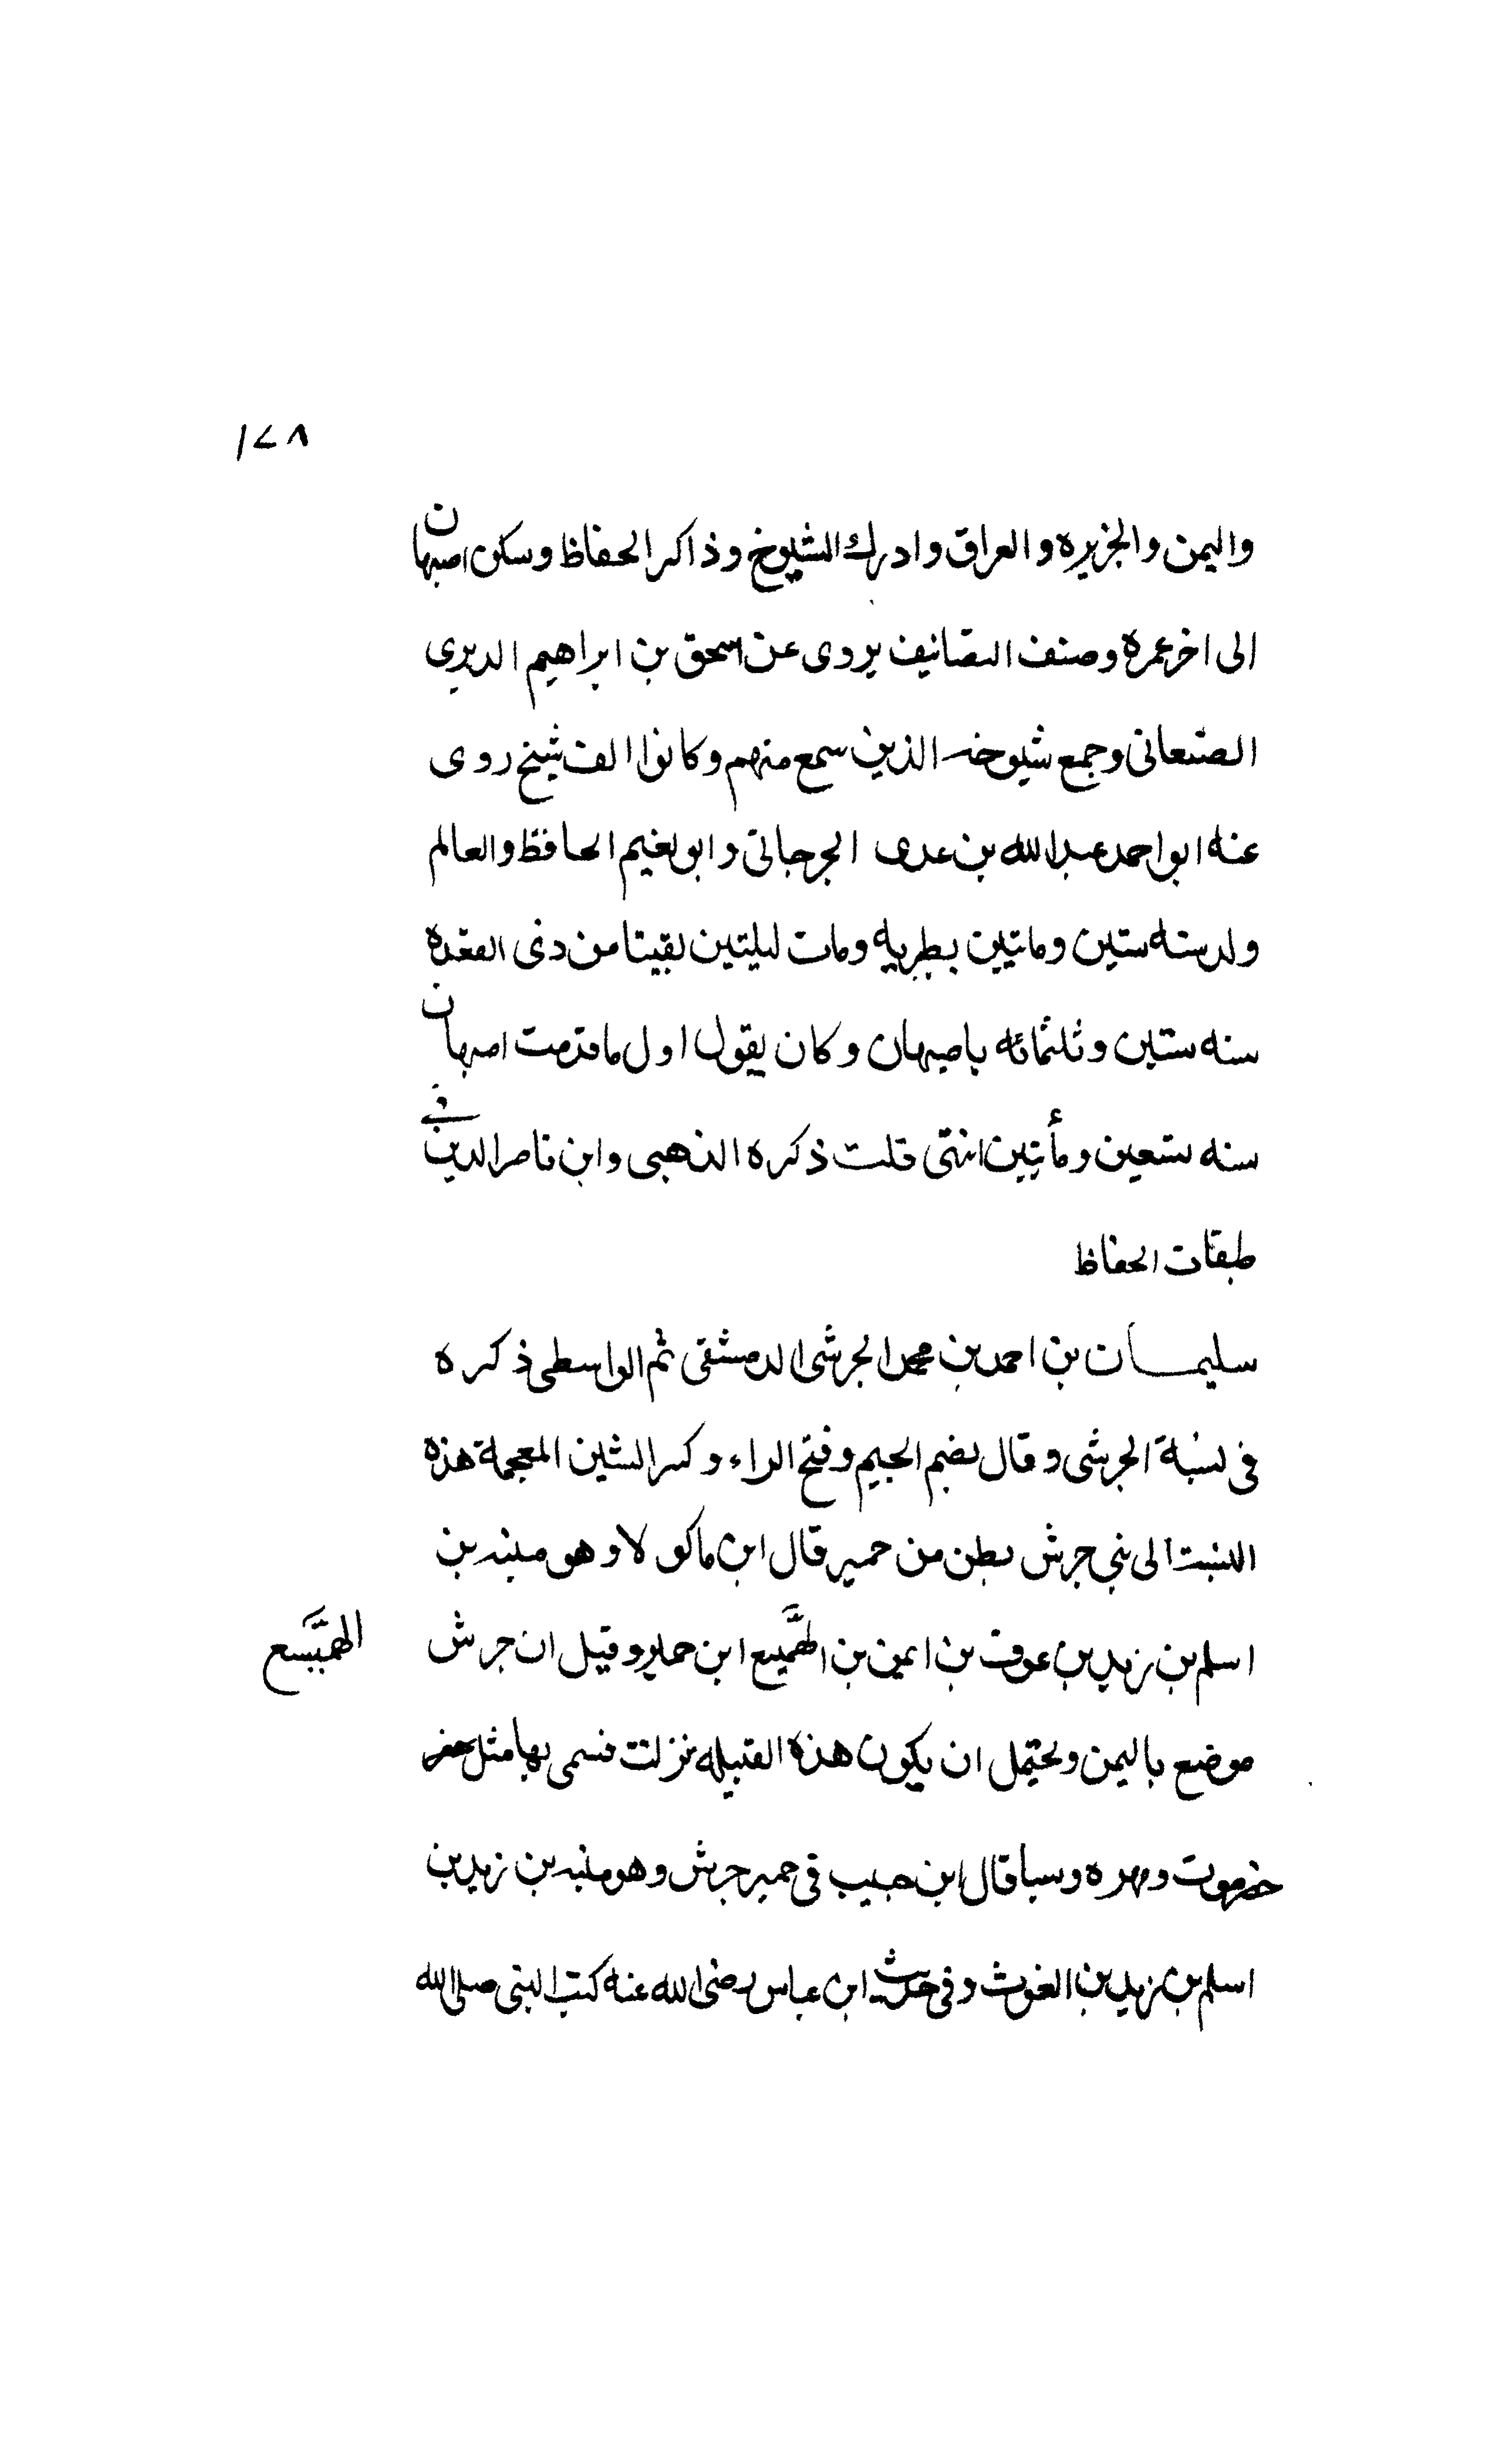 ١٧٨
واليمن والجزيره والعراق وادرك الشيوخ وذاكر الحفاظ وسكن اصبهان
الى اخر عمره وصنف التصانيف يروى عن اسحق بن ابراهيم الدبري
الصنعانى وجمع شيوخه الذين سمع منهم وكانوا الف شيخ روى
عنه ابو احمد عبد الله بن عدى الجرجانى وابو نعيم الحافظ والعالم
ولد سنه ستين وماتين بطبريه ومات لليلتين بقيتا من ذى القعده
سنه ستين وثلثمائه باصبهان وكان يقول اول ما قدمت اصبهان
سنه تسعين ومأتين انتهى قلت ذكره الذهبى وابن ناصر الدين في
طبقات الحفاظ
سليمان بن احمد بن محمد الجرشى الدمشقى ثم الواسطى ذكره
فى نسبة الجرشى وقال بضم الجيم وفتح الراء وكسر الشين المعجمة هذه
النسبت الى بني جرش بطن من حمير قال ابن ماكولا وهو منبه بن
اسلم بن زيد بن عوف بن ايمن بن الهميسع ابن حمير وقيل ان جرش
الهمَيسع
موضع باليمن ويحتمل ان يكون هذه القبيله نزلت فسمى بها مثل
حضرموت ومهره وسبا قال ابن حبيب فى حمير جرش وهو منبه بن زيد بن
اسلم بن زيد بن الغوث وفى حديث ابن عباس رضى الله عنه كتب النبى صلى الله